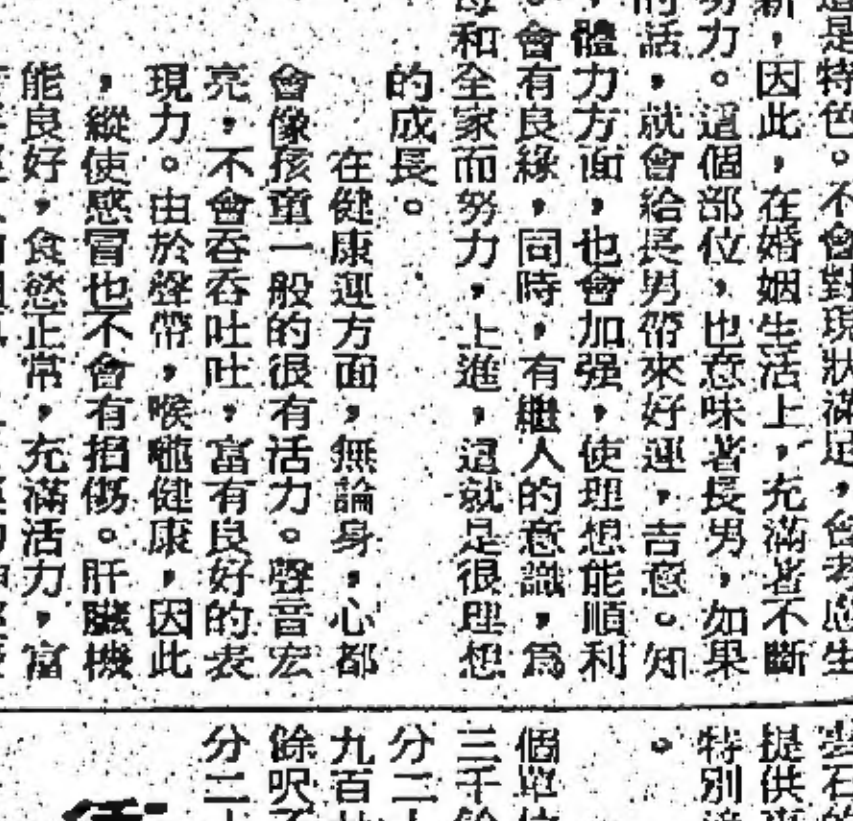 是特色。不會對現狀滿足，會去感生
新，因此，在婚姻生活上，充滿著不斷
努力。這個部位，也意味著長男，如果
的話，就會給長男帶來好運，吉意。知
，體力方面，也會加强，使理想能順利
。會有良緣，同時，有繼人的意識，為
母和全家而努力，上進，這就是很理想
的成長。
在健康運方面，無論身，心都
會像孩童一般的很有活力。聲音宏
亮，不會吞吞吐吐，富有良好的表
現力。由於聲帶，喉嚨健康，因此
，縱使感冒也不會有損傷。肝臟機
能良好，食慾正常，充滿活力，富
雲石的
提供
特別
。
個單位
三千餘
分二十
九百
餘呎
分二十